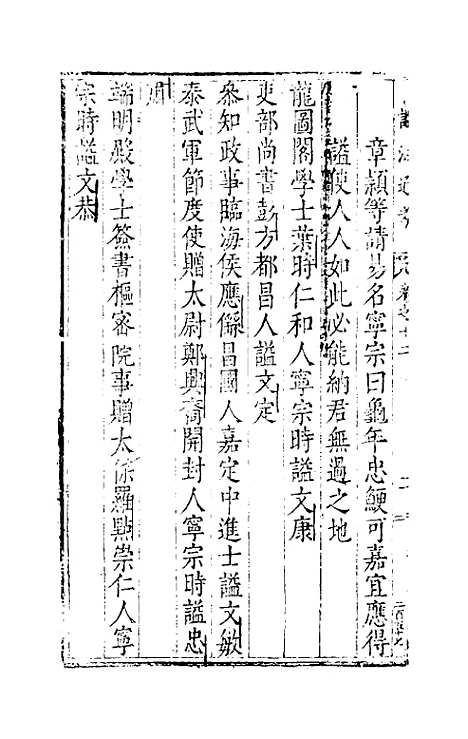 諡法通考
卷之十二
章頴等請易名寧宗曰龜年忠鯁可嘉宜應得
諡使人人如此必能納君無過之地
龍圖閣學士葉時仁和人寧宗時諡文康
吏部尚書彭方都昌人諡文定
參知政事臨海侯應㒡昌國人嘉定中進士諡文敏
泰武軍節度使贈太尉鄭興裔開封人寧宗時諡忠
肅
端明殿學士簽書樞密院事贈太保羅點崇仁人寧
宗時諡文恭